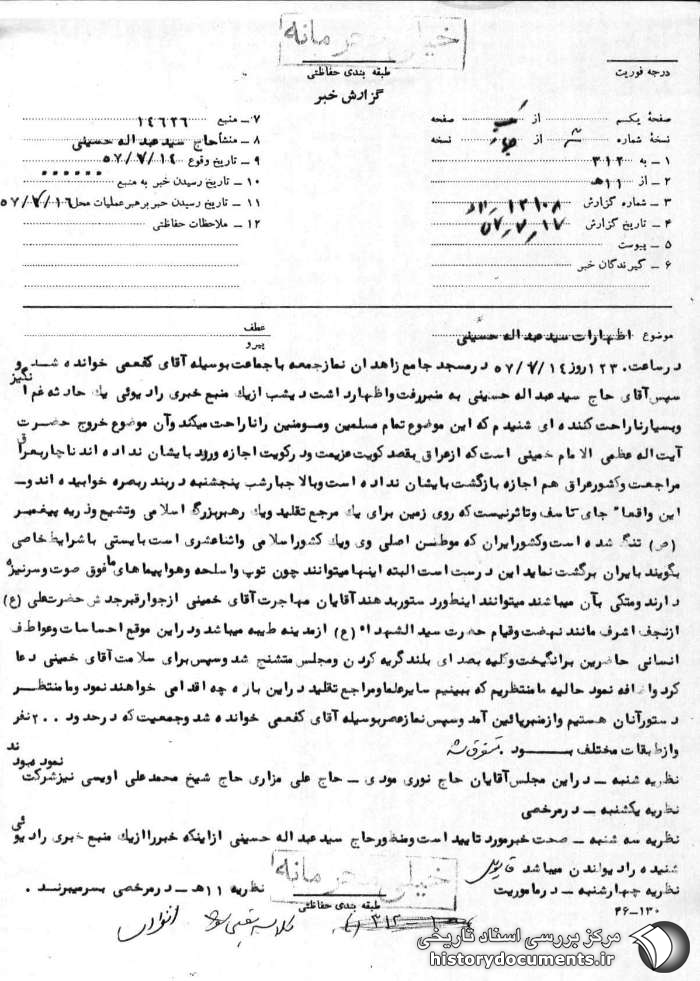 خیلی محرمانه
درجه فوریت
طبقه بندی حفاظتی
گزارش خبر
صفحهٔ یکم از صفحه
نسخهٔ شماره از نسخه
۱ – به ۳۱۲
۲ – از ۱۱ هـ
۳ – شماره گزارش ۱۲۱۰۸
۴ – تاریخ گزارش ۵۷٫۷٫۱۷
۵ – پیوست
۶ – گیرندگان خبر
۷ – منبع ۱۴۶۲۶
۸ – منشأ حاج سید عبداله حسینی
۹ – تاریخ وقوع ۵۷/۷/۱۴
۱۰ – تاریخ رسیدن خبر به منبع
۱۱ – تاریخ رسیدن خبر برهبر عملیات محل ۵۷/۷/۱۶
۱۲ – ملاحظات حفاظتی
موضوع اظهارات سید عبداله حسینی
عطف
پیرو
در ساعت ۱۲۳۰ روز ۵۷/۷/۱۴ در مسجد جامع زاهدان نماز جمعه با جماعت بوسیله آقای کفعمی خوانده شد و
سپس آقای حاج سید عبداله حسینی به منبر رفت و اظهار داشت دیشب از یک منبع خبری رادیوئی یک حادثه غم انگیز
و بسیار ناراحت کننده ای شنیدم که این موضوع تمام مسلمین و مومنین را ناراحت میکند و آن موضوع خروج حضرت
آیت اله عظمی الامام خمینی است که از عراق بقصد کویت عزیمت و در کویت اجازه ورود بایشان نداده اند ناچار بعراق
مراجعت و کشور عراق هم اجازه بازگشت بایشان نداده است و بالاجبار شب پنجشنبه در بندر بصره خوابیده اند و –
این واقعاً جای تاسف و تاثر نیست که روی زمین برای یک مرجع تقلید و یک رهبر بزرگ اسلامی و تشیع و ذریه پیغمبر
(ص) تنگ شده است و کشور ایران که موطن اصلی وی و یک کشور اسلامی و اثنا عشری است بایستی با شرایط خاصی
بگویند بایران برگشت نماید این درست است البته اینها میتوانند چون توپ و اسلحه و هواپیماهای مافوق صوت و سرنیزه
دارند و متکی بآن میباشند میتوانند اینطور دستور بدهند آقایان مهاجرت آقای خمینی از جوار قبر جدش حضرت علی (ع)
از نجف اشرف مانند نهضت و قیام حضرت سید الشهداء (ع) از مدینه طیبه میباشد و در این موقع احساسات و عواطف
انسانی حاضرین برانگیخت و کلیه بصدای بلند گریه کردن و مجلس متشنج شد و سپس برای سلامت آقای خمینی دعا
کرد و اضافه نمود حالیه ما منتظریم که ببینیم سایر علما و مراجع تقلید در این باره چه اقدامی خواهند نمود و ما منتظر
دستور آنان هستیم و از منبر پائین آمد و سپس نماز عصر بوسیله آقای کفعمی خوانده شد و جمعیت که در حدود ۲۰۰ نفر
و از طبقات مختلف بسود . متفرق شدند
نظریه شنبه – در این مجلس آقایان حاج نوری مودی – حاج علی مزاری حاج شیخ محمدعلی اویسی نیز شرکت نمود بودند
نظریه یکشنبه – در مرخصی
نظریه سه شنبه – صحت خبر مورد تایید است و منظور حاج سید عبداله حسینی از اینکه خبر را از یک منبع خبری رادیوئی
شنیده رادیو لندن میباشد
نظریه چهارشنبه – در ماموریت
نظریه ۱۱ هـ – در مرخصی بسر میبرند .
خیلی محرمانه
طبقه بندی حفاظتی
۴۶–۱۳۰
مرکز بررسی اسناد تاریخی
historydocuments.ir